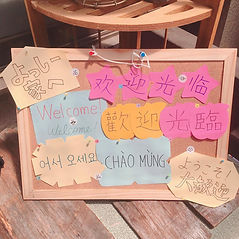 よっしー
へ
欢迎光临
Welcome!
Welcome!
歡迎光臨
어서 오세요
CHÀO MỪNG
ようこそ!
大歓迎